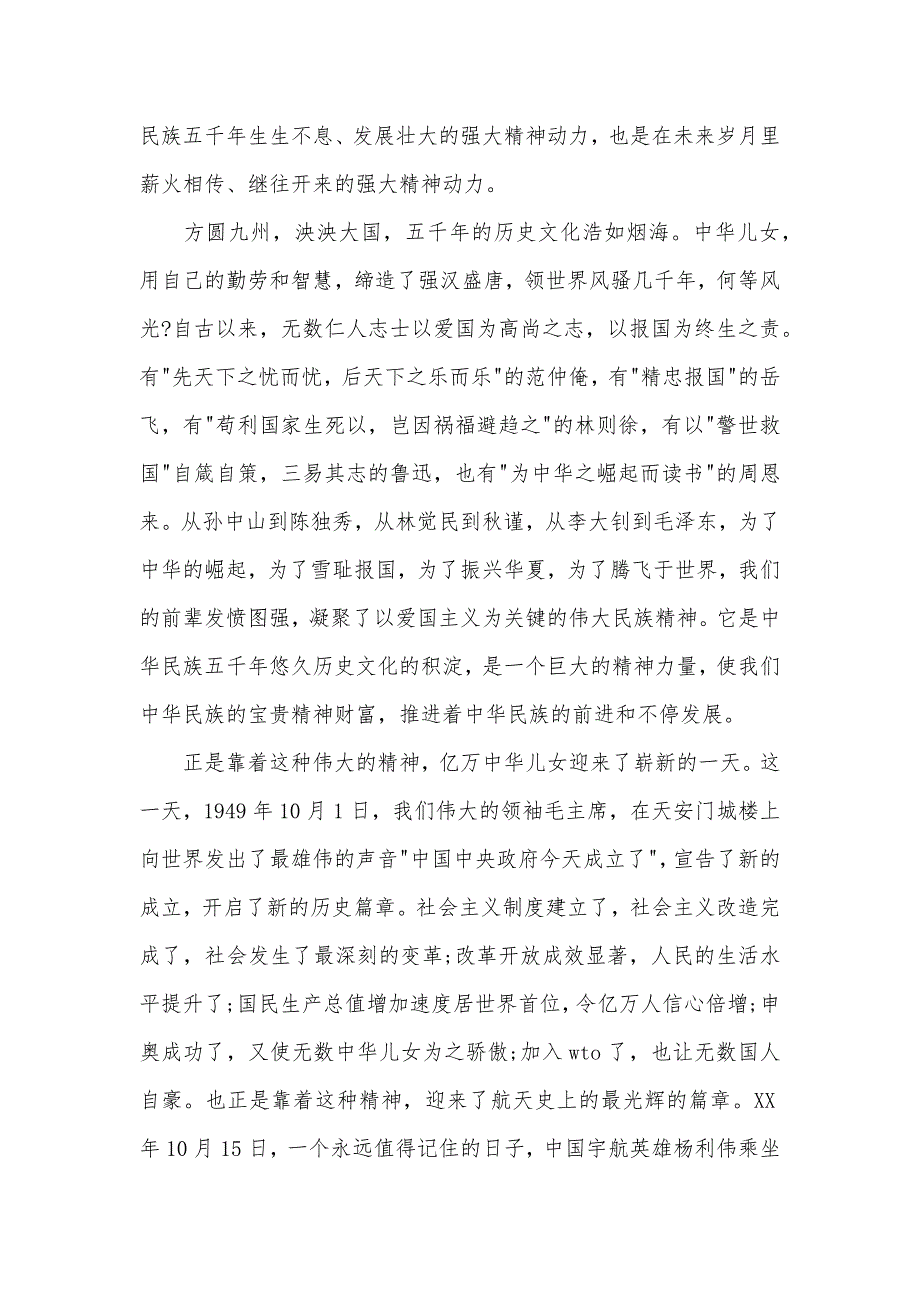 民族五千年生生不息、发展壮大的强大精神动力，也是在未来岁月里
薪火相传、继往开来的强大精神动力。
方圆九州，泱泱大国，五千年的历史文化浩如烟海。中华儿女，
用自己的勤劳和智慧，缔造了强汉盛唐，领世界风骚几千年，何等风
光?自古以来，无数仁人志士以爱国为高尚之志，以报国为终生之责。
有"先天下之忧而忧，后天下之乐而乐"的范仲俺，有"精忠报国"的岳
飞，有"苟利国家生死以，岂因祸福避趋之"的林则徐，有以"警世救
国"自箴自策，三易其志的鲁迅，也有"为中华之崛起而读书"的周恩
来。从孙中山到陈独秀，从林觉民到秋谨，从李大钊到毛泽东，为了
中华的崛起，为了雪耻报国，为了振兴华夏，为了腾飞于世界，我们
的前辈发愤图强，凝聚了以爱国主义为关键的伟大民族精神。它是中
华民族五千年悠久历史文化的积淀，是一个巨大的精神力量，使我们
中华民族的宝贵精神财富，推进着中华民族的前进和不停发展。
正是靠着这种伟大的精神，亿万中华儿女迎来了崭新的一天。这
一天，1949 年 10 月 1 日，我们伟大的领袖毛主席，在天安门城楼上
向世界发出了最雄伟的声音"中国中央政府今天成立了"，宣告了新的
成立，开启了新的历史篇章。社会主义制度建立了，社会主义改造完
成了，社会发生了最深刻的变革;改革开放成效显著，人民的生活水
平提升了;国民生产总值增加速度居世界首位，令亿万人信心倍增;申
奥成功了，又使无数中华儿女为之骄傲;加入 wto 了，也让无数国人
自豪。也正是靠着这种精神，迎来了航天史上的最光辉的篇章。XX
年 10 月 15 日，一个永远值得记住的日子，中国宇航英雄杨利伟乘坐